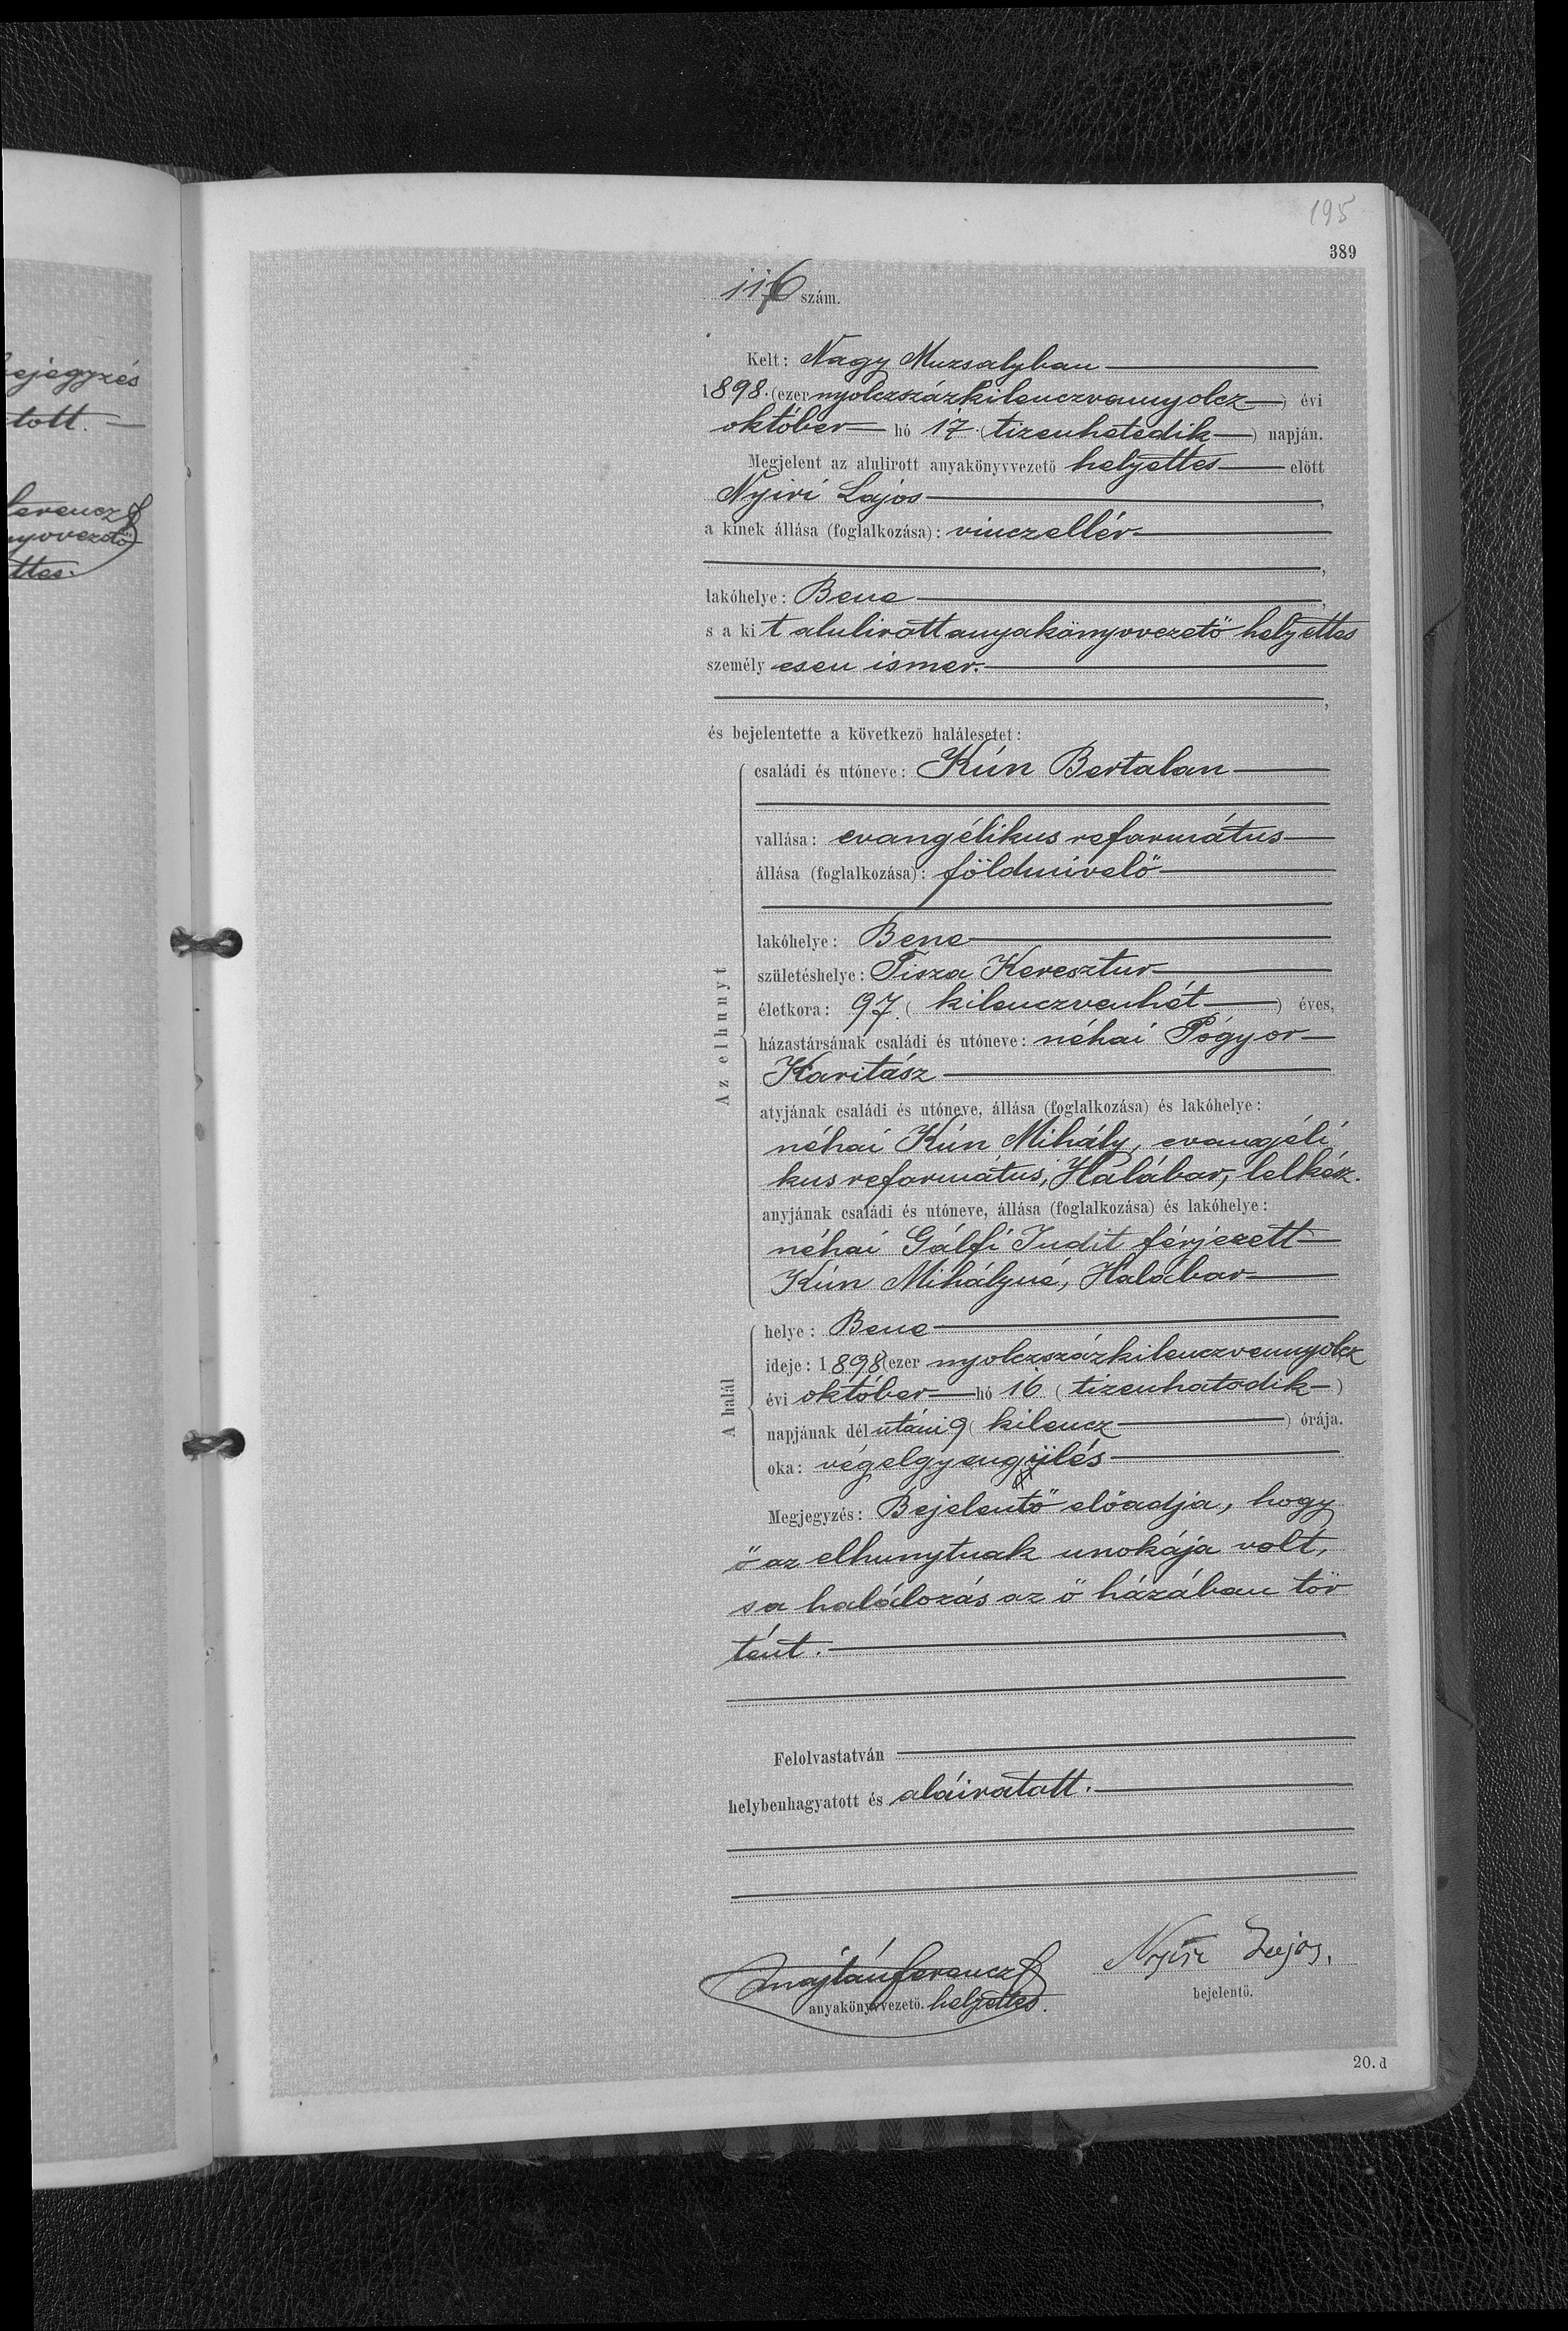 ejegyzés
tott. —
ferencz
nyvvezető
ttes.
195
389
116 szám.
Kelt: Nagy Muzsalyban
1898. (ezer nyolczszázkilenczvennyolcz) évi
október hó 17. (tizenhetedik) napján.
Megjelent az alulirott anyakönyvvezető helyettes előtt
Nyiri Lajos,
a kinek állása (foglalkozása): vinczellér
,
lakóhelye: Bene,
s a kit alulirott anyakönyvvezető helyettes
személyesen ismer.
,
és bejelentette a következő halálesetet:
Az elhunyt
családi és utóneve: Kún Bertalan
vallása: evangélikus református
állása (foglalkozása): földmivelő
lakóhelye: Bene
születéshelye: Tisza Keresztur
életkora: 97. (kilenczvenhét) éves,
házastársának családi és utóneve: néhai Pógyor
Karitász
atyjának családi és utóneve, állása (foglalkozása) és lakóhelye:
néhai Kún Mihály, evangéli
kus református, Halábor, lelkész.
anyjának családi és utóneve, állása (foglalkozása) és lakóhelye:
néhai Gálfi Judit férjezett
Kún Mihályné, Halábor
A halál
helye: Bene
ideje: 1898 (ezer nyolczszázkilenczvennyolcz
évi október hó 16 (tizenhatodik)
napjának délutáni 9 (kilencz) órája.
oka: végelgyengülés
Megjegyzés: Bejelentő előadja, hogy
ő az elhunytnak unokája volt,
s a halálozás az ő házában tör
tént.
Felolvastatván
helybenhagyatott és aláiratott.
Majtán ferencz
Nyiri Lajos.
anyakönyvvezető. helyettes.
bejelentő.
20. d